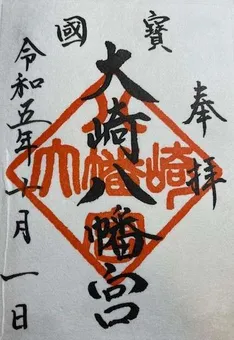 奉拝
國寶
大崎八幡宮
令和五年十月一日
大崎八幡宮